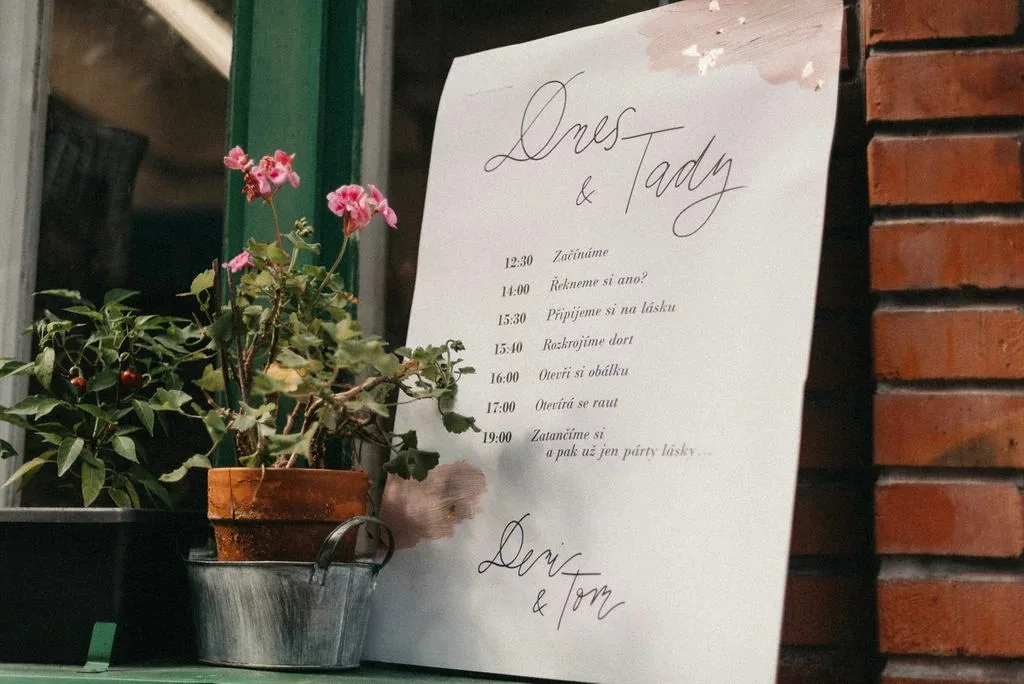 Dnes
& Tady
12:30 Začínáme
14:00 Řekneme si ano?
15:30 Připijeme si na lásku
15:40 Rozkrojíme dort
16:00 Otevři si obálku
17:00 Otevírá se raut
19:00 Zatančíme si
a pak už jen párty lásky...
Deni
& Tom